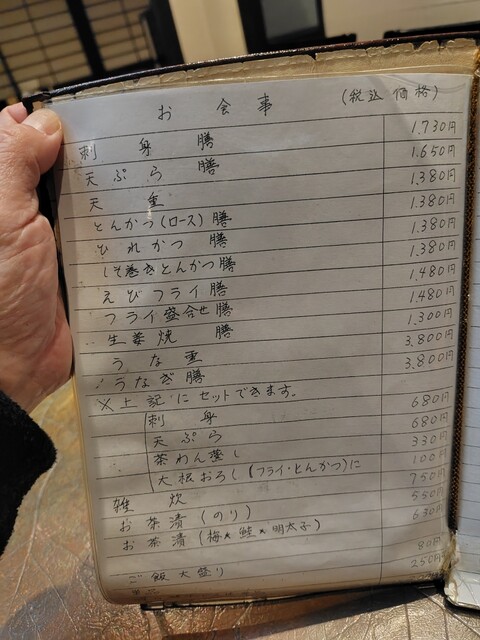 お会事 (税込価格)
刺身膳 1.730円
天ぷら膳 1.650円
天重 1.380円
とんかつ(ロース)膳 1.380円
ひれかつ膳 1.380円
しそ巻きとんかつ膳 1.380円
えびフライ膳 1.480円
フライ盛合せ膳 1.480円
生姜焼膳 1.300円
うな重 3.800円
うなぎ膳 3.800円
※上記にセットできます。
刺身 680円
天ぷら 680円
茶わん蒸し 330円
大根おろし(フライ・とんかつ)に 100円
雑炊 750円
お茶漬(のり) 550円
お茶漬(梅*鮭*明太子) 630円
ご飯大盛り 80円
250円